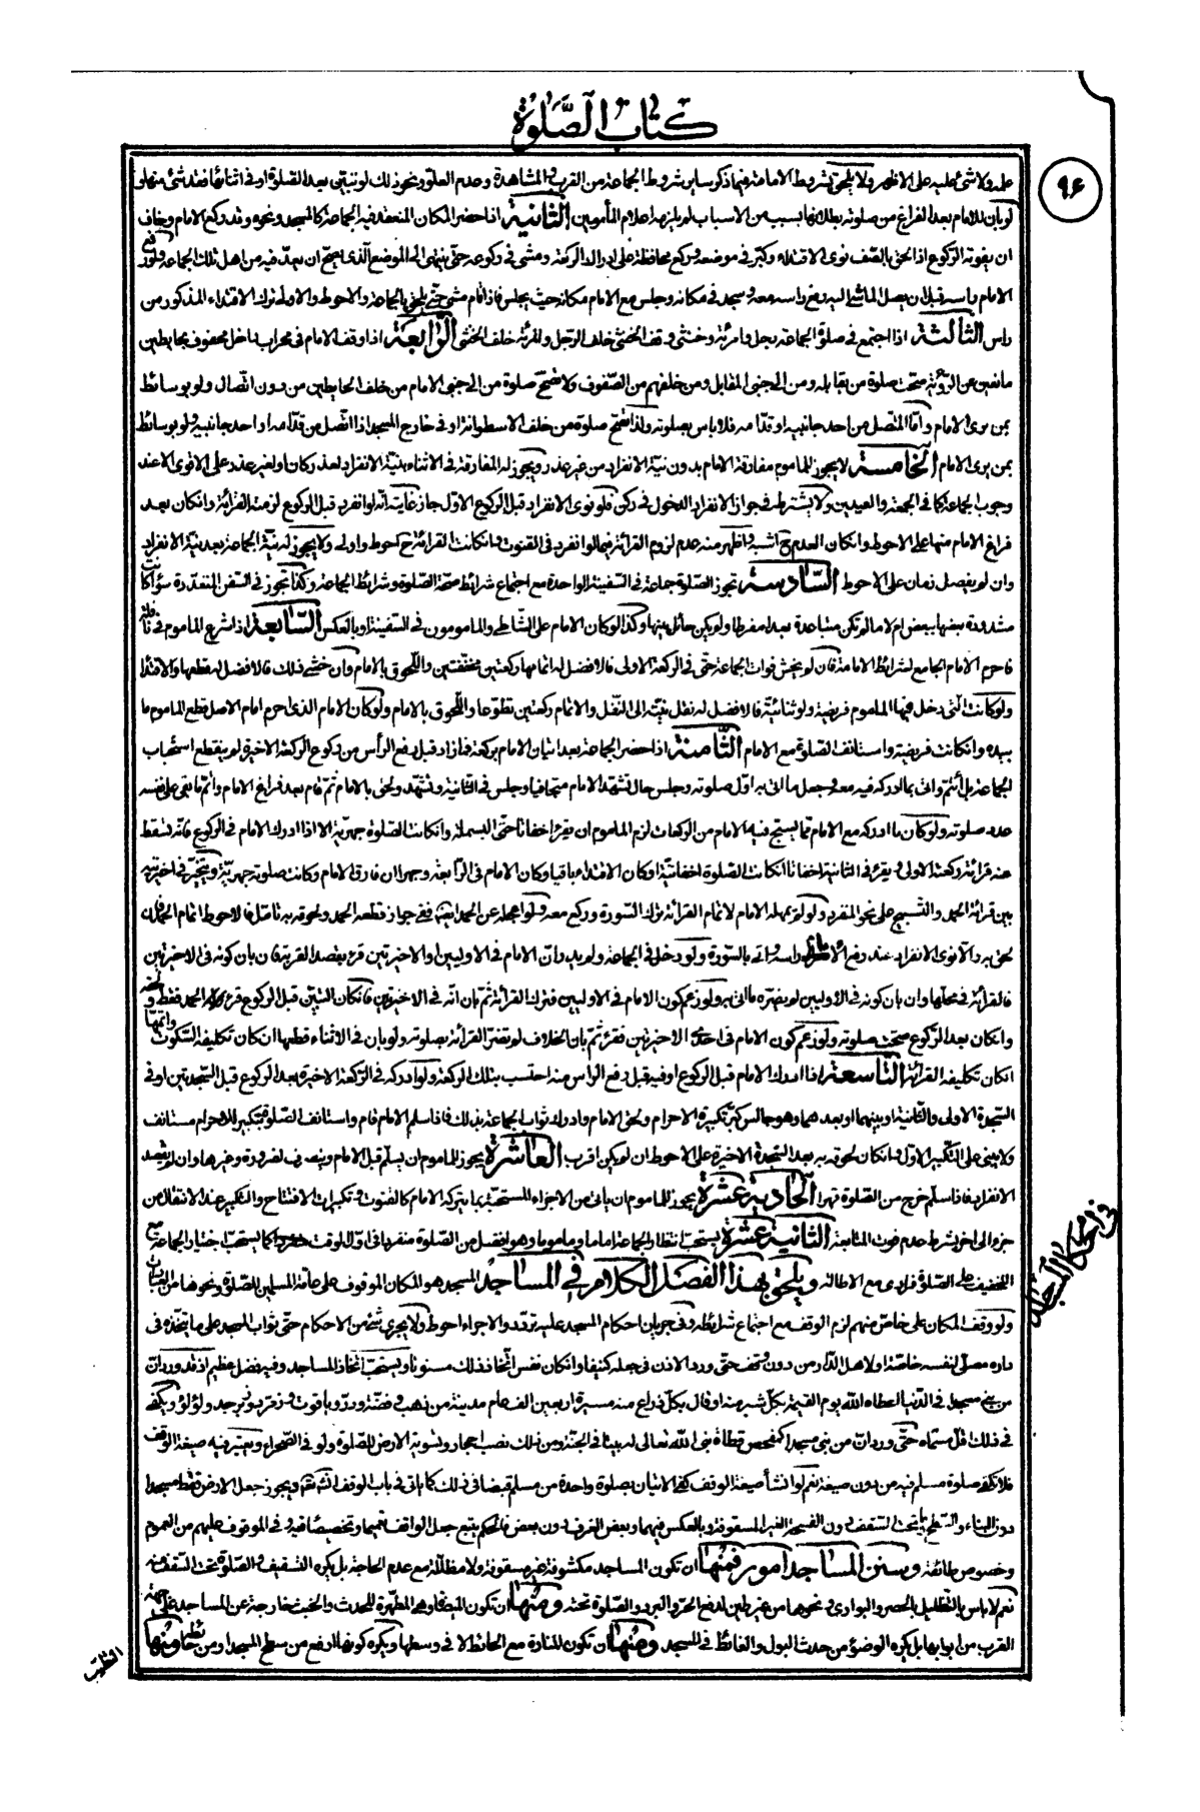 كتاب الصَّلوة
٩۶
عليه ولا شئ عليه على الاظهر ولا يلحق بشروط الامامة فيما ذكر ساير شروط الجماعة من القرب والمشاهدة وعدم العلو ونحو ذلك لو تبيّن بعد الصّلوة او فى اثنائها فقد شئ منها و
لو بان للامام بعد الفراغ من صلوته بطلانها بسبب من الاسباب لم يلزمه اعلام المأمومين الثّانية اذا حضر المكان المنعقد فيه الجماعة كالمسجد ونحوه وقد ركع الامام وخاف
ان يفوته الرّكوع اذا لحق بالصّف نوى الاقتداء وكبّر فى موضعه وركع محافظة على ادراك الركعة ومشى فى ركوعه حتّى ينتهى الى الموضع الّذى يصحّ ان يعدّ فيه من اهل تلك الجماعة ولو رفع
الامام راسه قبل ان يصل الماشى اليه رفع راسه معه وسجد فى مكانه وجلس مع الامام مكانه حيث يجلس فاذا قام مشى حتّى يلحق بالجماعة والاحوط والاولى ترك الاقتداء المذكور من
راس الثّالثة اذا اجتمع فى صلوة الجماعة رجل وامرئة وخنثى وقف الخنثى خلف الرّجل والمرئة خلف الخنثى الرّابعة اذا وقف الامام فى محراب داخل محفوف بحايطين
مانعين عن الرّؤية صحّت صلوة من يقابله ومن الى جنبى المقابل ومن خلفهم من الصّفوف ولا تصحّ صلوة من الى جنبى الامام من خلف الحايطين من دون اتّصال ولو بوسائط
بمن يرى الامام وامّا المتّصل من احد جانبيه او قدّامه فلا باس بصلوته ولذا تصحّ صلوة من خلف الاسطوانة او فى خارج المسجد اذا اتّصل من قدّامه او احد جانبيه ولو بوسائط
بمن يرى الامام الخامسة لا يجوز للماموم مفارقة الامام بدون نيّة الانفراد من غير عذر ويجوز له المفارقة فى الاثناء بنيّة الانفراد لعذر كان او لغير عذر على الاقوى الا عند
وجوب الجماعة كما فى الجمعة والعيدين ولا يشترط فى جواز الانفراد الدخول فى ركن فلو نوى الانفراد قبل الركوع الاوّل جاز غايته انّه لو انفرد قبل الركوع لزمته القرائة وان كان بعد
فراغ الامام منها على الاحوط وان كان العدم ح اشبه واظهر منه عدم لزوم القرائة فيما لو انفرد فى القنوت وان كانت القرائة ح احوط واولى ولا يجوز له نيّة الجماعة بعد نية الانفراد
وان لم يفصل زمان على الاحوط السّادسة تجوز الصّلوة جماعة فى السّفينة الواحدة مع اجتماع شرائط صحّة الصّلوة وشرائط الجماعة وكذا تجوز فى السّفن المتعدّدة سواء كانت
مشدودة بعضها ببعض ام لا ما لم تكن متباعدة بعدا مفرطا ولم يكن حائل بينها وكذا لو كان الامام على الشّاطئ والمامومون فى السّفينة او بالعكس السّابعة اذا شرع الماموم فى نافلة
فاحرم الامام الجامع لشرائط الامامة فان لم يخش فوات الجماعة حتّى فى الركعة الاولى فالافضل له اتمامها ركعتين مخفّفتين واللّحوق بالامام وان خشى ذلك فالافضل له قطعها والاقتداء
ولو كانت الّتى دخل فيها الماموم فريضة ولو ثنائيّة فالافضل له نقل نيّته الى النّفل والاتمام ركعتين تطوّعا واللّحوق بالامام ولو كان الامام الذى احرم امام الاصل قطع الماموم ما
بيده وان كانت فريضة واستانف الصّلوة مع الامام الثّامنة اذا حضر الجماعة بعد اتيان الامام بركعة فزاد او قبل رفع الرأس من ركوع الركعة الاخيرة لم ينقطع استحباب
الجماعة بل أئتم واتى بما ادركه فيه معه وجعل ما اتى به اوّل صلوته وجلس حال تشهّد الامام متجافيا وجلس فى الثّانية وتشهّد ولحق بالامام ثم قام بعد فراغ الامام واتم ما بقى على نفسه
عدد صلوته ولو كان ما ادركه مع الامام ممّا يسبّح فيه الامام من الركعات لزم الماموم ان يقرء اخفاتا حتّى البسملة وان كانت الصّلوة جهريّة الا اذا ادرك الامام فى الركوع فانّه تسقط
عنه قرائة ركعته الاولى ويقرء فى الثانية اخفاتا ان كانت الصّلوة اخفاتيّة او كان الاقتداء باقيا وكان الامام فى الرّابعة وجهرا ان فارق الامام وكانت صلوته جهريّة ويتخيّر فى اخيرتيه
بين قرائة الحمد والتّسبيح على نحو المنفرد ولو لم يمهله الامام لاتمام القرائة ترك السّورة وركع معه ولو اعجله عن الحمد ايضا ففى جواز قطعه الحمد ولحوقه به تامّل فالاحوط اتمام الحمد فان
لحق به والا نوى الانفراد عند رفع الامام راسه واتى بالسّورة ولو دخل فى الجماعة ولم يدر انّ الامام فى الاوليين او الاخيرتين قرء بقصد القربة فان بان كونه فى الاخيرتين
فالقرائة فى محلّها وان بان كونه فى الاوليين لم يضرّه ما اتى به ولو زعم كون الامام فى الاوليين فترك القرائة ثمّ بان انّه فى الاخيرتين فان كان التبيّن قبل الركوع قرء الحمد فقط ولحقه
وان كان بعد الرّكوع صحّت صلوته ولو زعم كون الامام فى احدى الاخيرتين فقرء ثمّ بان الخلاف لم يضرّ القرائة بصلوته ولو بان فى الاثناء قطعها ان كان تكليفه السّكوت واتمّها
ان كان تكليفه القرائة التّاسعة اذا ادرك الامام قبل الركوع او فيه قبل رفع الراس منه احتسب بتلك الركعة ولو ادركه فى الرّكعة الاخيرة بعد الركوع قبل السّجدتين او فى
السّجدة الاولى والثّانية او بينهما او بعدهما وهو جالس كبّر تكبيرة الاحرام ولحق الامام وادرك ثواب الجماعة بذلك فاذا سلم الامام قام واستانف الصّلوة بتكبير للاحرام مستانف
ولا يبنى على التّكبير الاوّل وان كان لحوقه به بعد السّجدة الاخيرة على الاحوط ان لم يكن اقرب العاشرة يجوز للماموم ان يسلّم قبل الامام وينصرف لضرورة وغيرها وان لم يقصد
الانفراد فاذا سلّم خرج من الصّلوة قهرا الحادية عشرة يجوز للماموم ان ياتى من الاجزاء المستحبّة بما يتركه الامام كالقنوت وتكبيرات الافتتاح والتّكبير عند الانتقال من
جزء الى اخر بشرط عدم فوت المتابعة الثّانية عشرة يستحبّ انتظار الجماعة اماما وماموما وهو افضل من الصّلوة منفردا فى اوّل الوقت كما يستحبّ اختيار الجماعة مع
التّخفيف على الصّلوة فرادى مع الاطالة ويلحق بهذا الفصل الكلام فى المساجد المسجد هو المكان الموقوف على عامّة المسلمين للصّلوة ونحوها من العبادات
ولو وقف المكان على خاصّ منهم لزم الوقف مع اجتماع شرائطه وفى جريان احكام المسجد عليه تردّد والاجراء احوط ولا يجرى شئ من الاحكام حتّى ثواب المسجد على ما يتّخذه فى
داره مصلّى لنفسه خاصّة او لاهل الدّار من دون وقف حتّى ورد الاذن فى جعله كنيفا وان كان نفس اتّخاذ ذلك مسنونا ويستحبّ اتّخاذ المساجد وفيه فضل عظيم اذ قد ورد انّ
من بنى مسجدا فى الدّنيا اعطاه الله يوم القيمة بكلّ شبر منه او قال بكلّ ذراع منه مسيرة اربعين الف عام مدينة من ذهب وفضّة ودرّ وياقوت وزمرّد وزبرجد ولؤلؤ ويكفى
فى ذلك اقلّ مسمّاه حتّى ورد انّ من بنى مسجدا كمفحص قطاة بنى الله تعالى له بيتا فى الجنّة ومن ذلك نصب احجار وتسوية الارض للصّلوة ولو فى الصّحراء ويعتبر فيه صيغة الوقف
فلا تكفى صلوة مسلم فيه من دون صيغة نعم لو انشأ صيغة الوقف كفى الاتيان بصلوة واحدة من مسلم قبضا فى ذلك كما ياتى فى باب الوقف انشاءالله تعالى ويجوز جعل الارض فقط مسجدا
دون البناء والسّطح وتحت السّقف دون الفسحة الغير المسقوفة وبالعكس فيهما وبعض الغرف دون بعض فالحكم يتبع جعل الواقف تعميما وتخصيصا فيه وفى الموقوف عليهم من العموم
وخصوص طائفة ويسنّ فى المساجد امور فمنها ان تكون المساجد مكشوفة غير مسقوفة ولا مظلّلة مع عدم الحاجة بل يكره التّسقيف والصّلوة تحت السّقف منه
نعم لا باس بالتّظليل بالحصر والبوارى ونحوها من غير طين لدفع الحرّ والبرد والصّلوة تحته ومنها ان تكون الميضاة وهى المطهّرة للحدث والخبث خارجة عن المساجد على جهة
القرب من ابوابها بل يكره الوضوء من حدث البول والغائط فى المسجد ومنها ان تكون المنارة مع الحائط لا فى وسطها ويكره كونها ارفع من سطح المسجد ومن حائطه ومنها
فى احكام المساجد